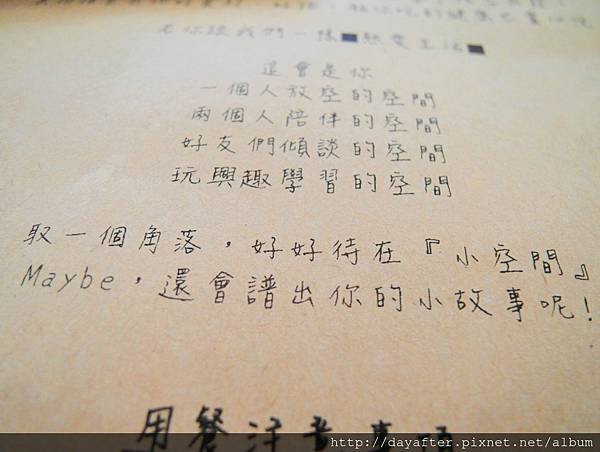 若你跟我們一樣■熱愛生活■
這會是你
一個人放空的空間
兩個人陪伴的空間
好友們傾談的空間
玩興趣學習的空間
馭一個角落，好好待在『小空間』
Maybe，還會譜出你的小故事呢！
用餐注意事項
http://dayafter.pixnet.net/album